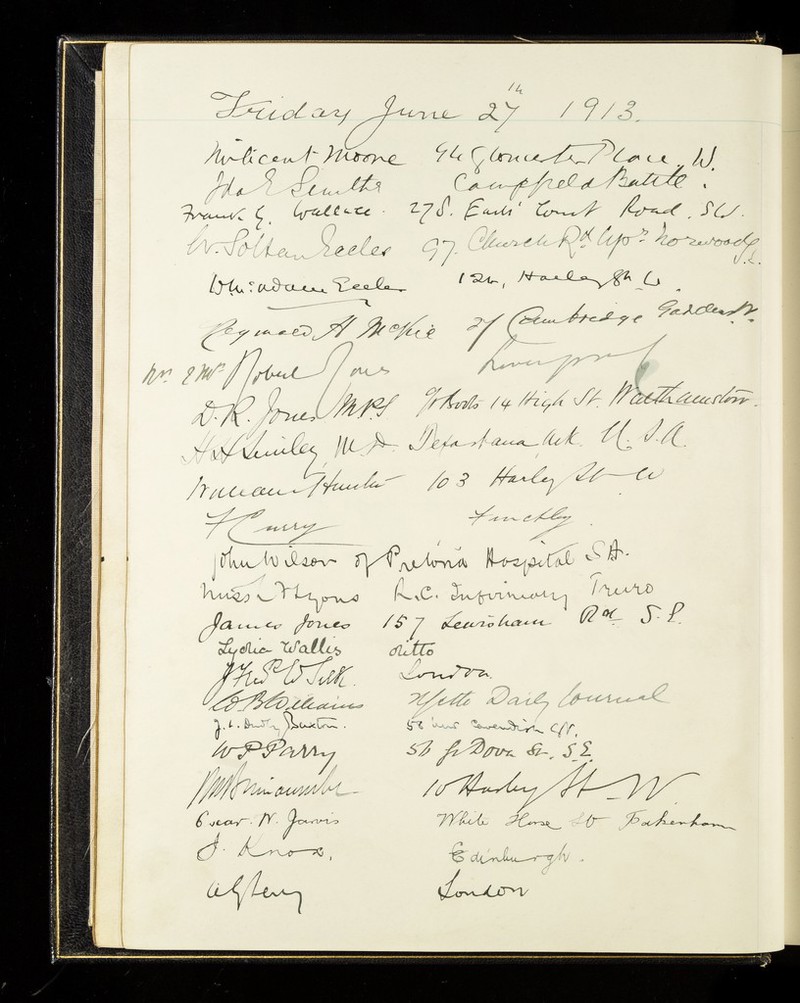 Friday June 27th 1913.
Millicent Moore 94 Gloucester Place, W.
Ida E Smithe Campfield Battle.
Frank G. Wallace. 278. Earls Court Road. SW.
W. Soltau Eccles 97. Church Rd Upr Norwood S.E.
Wm: Adam Eccles 124, Harley St W.
Reginald H McKie 27 Cambridge Gardens W.
Mr. & Mrs Robert Jones Liverpool
D. R. Jones MPS c/o Boots 14 High St. Walthamstow.
H H Smiley, M.D. Texarkana Ark. U.S.A.
William Hunter 103 Harley St W
F Curry Finchley.
John Wilson of Pretoria Hospital SA.
Miss Lyons R.C. Infirmary Truro
James Jones 157 Lewisham Rd S.E.
Lydia Wallis ditto
J Fredk W Silk. London
W B Williams Daily Journal
J. L. Dudley Buxton. Cavendish
W P Parry 56 Gt Dover St. S.E.
10 Harley St W
Oscar. N. Jarvis White Horse St Fakenham
J. Knox. Edinburgh.
London